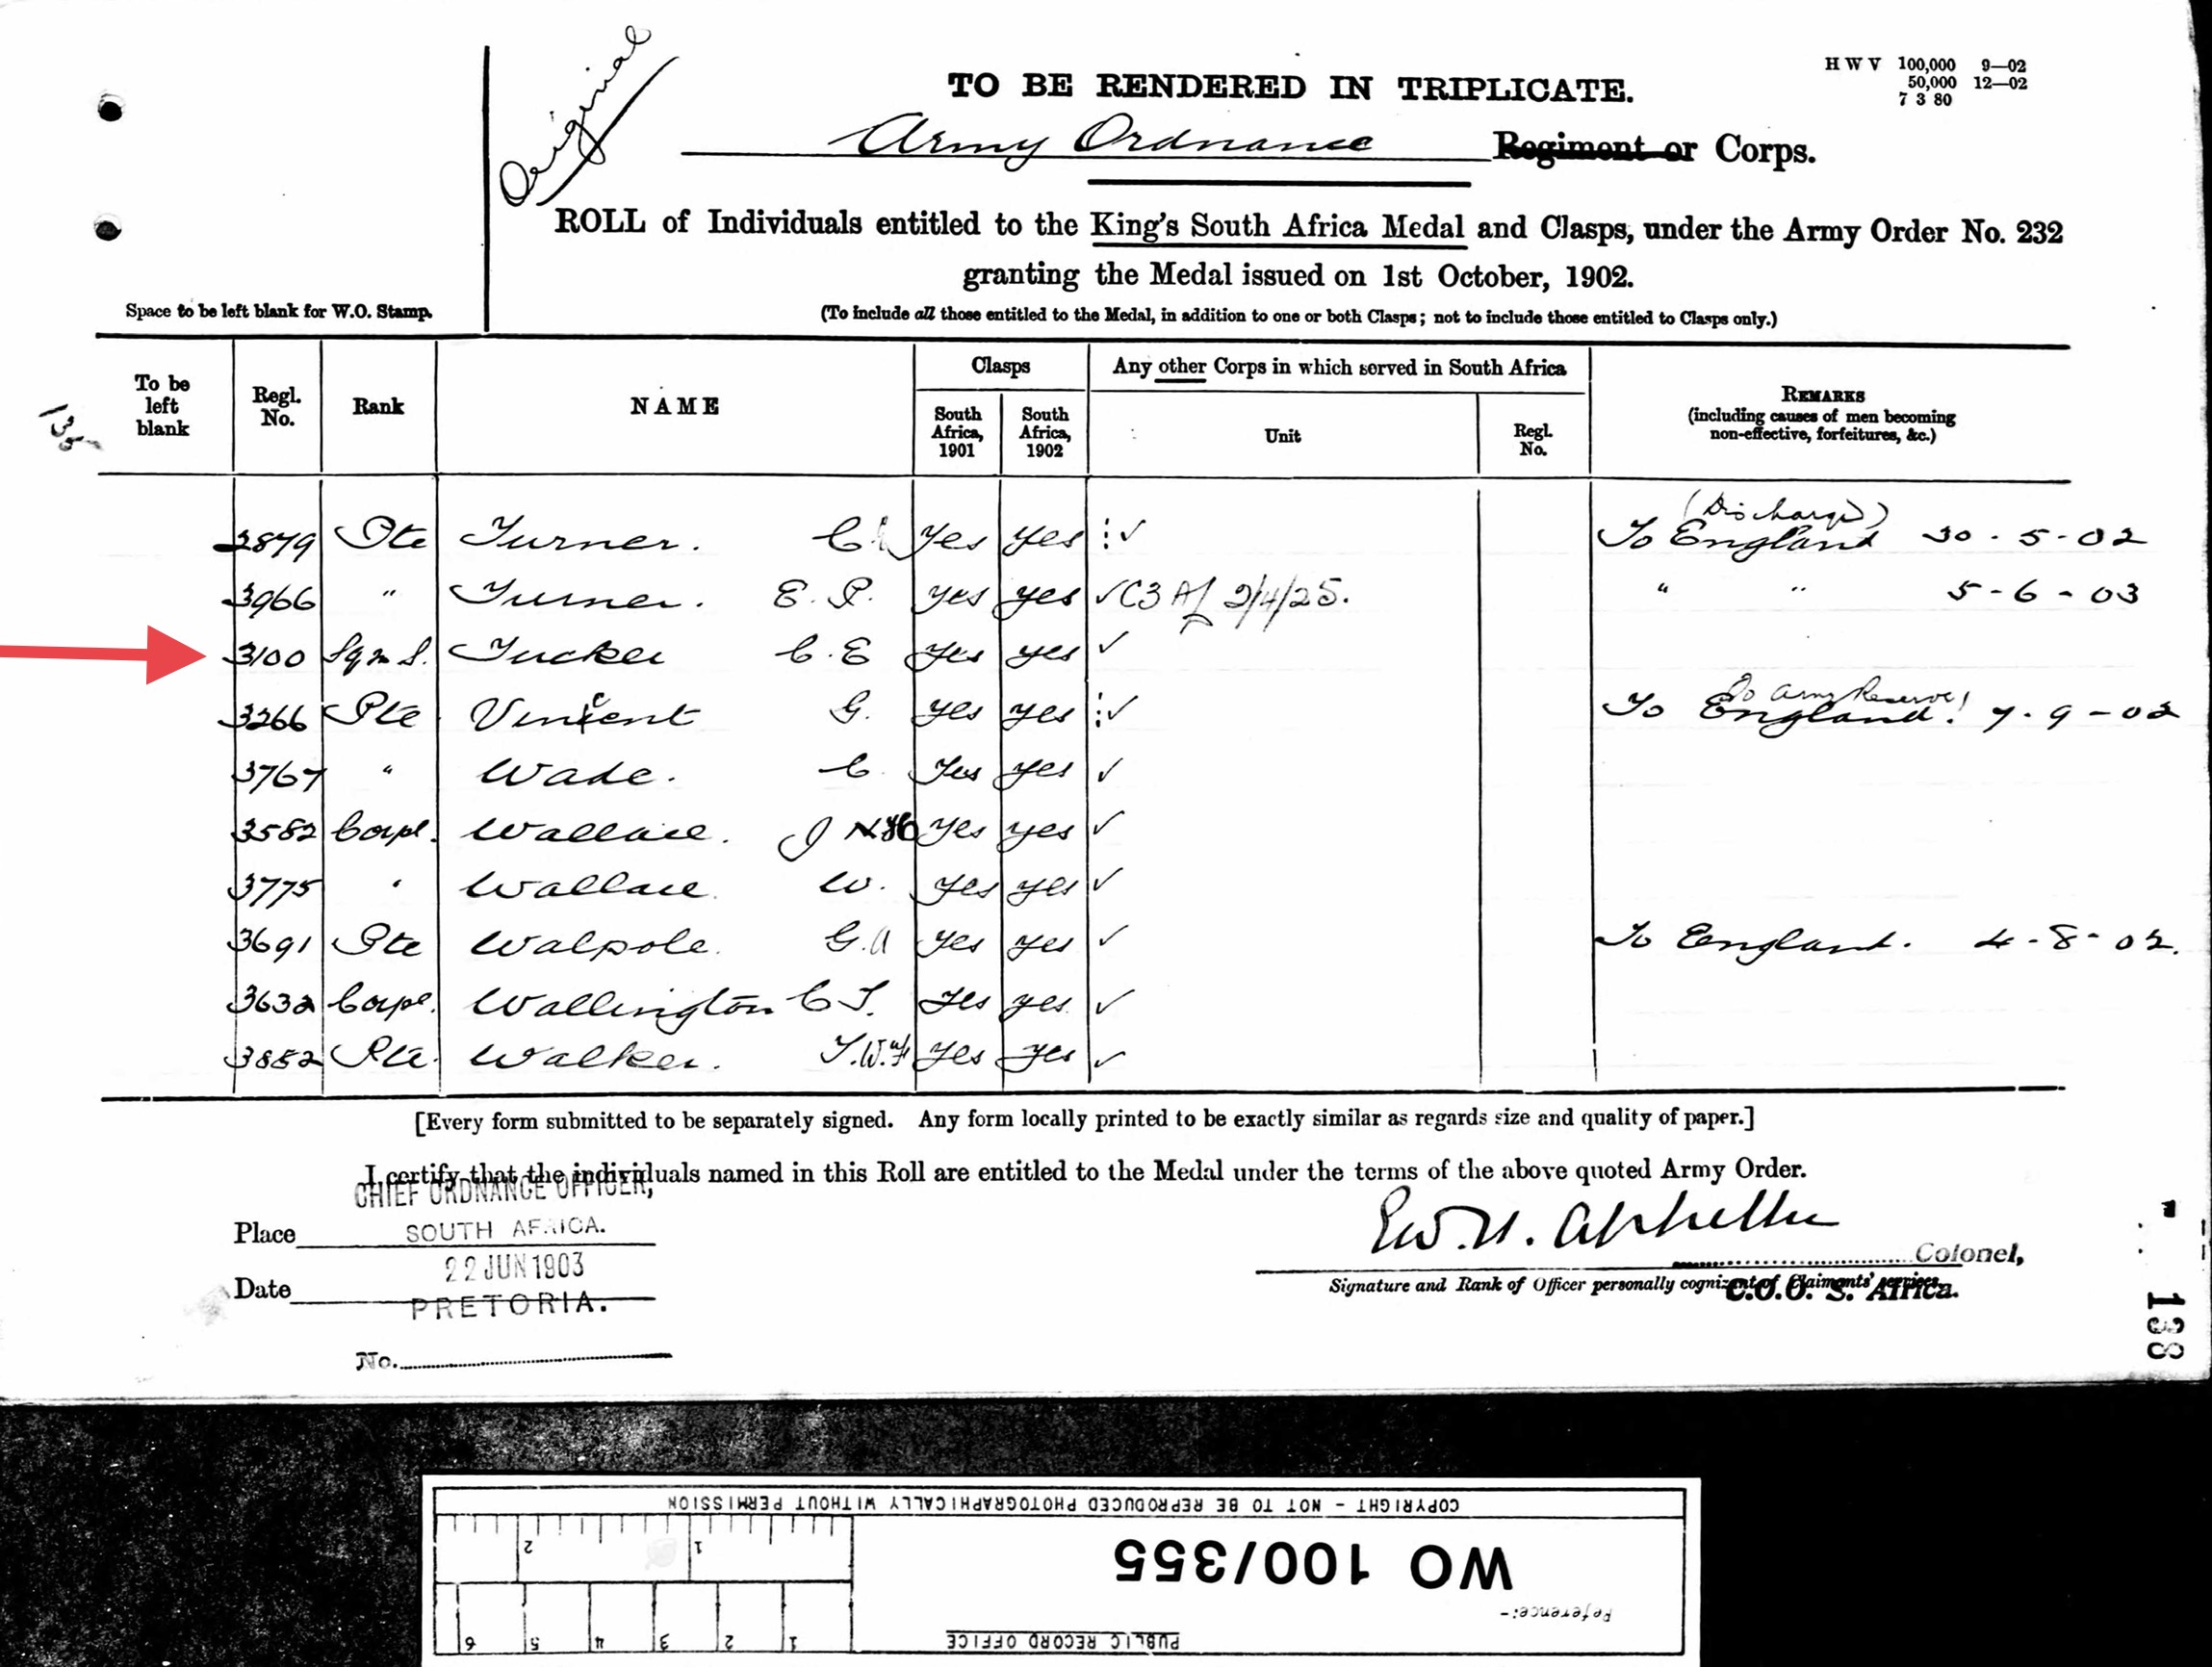 Original
TO BE RENDERED IN TRIPLICATE.
H W V 100,000 9—02
50,000 12—02
7 3 80
Army Ordnance Regiment or Corps.
ROLL of Individuals entitled to the King's South Africa Medal and Clasps, under the Army Order No. 232
granting the Medal issued on 1st October, 1902.
Space to be left blank for W.O. Stamp.
(To include all those entitled to the Medal, in addition to one or both Clasps; not to include those entitled to Clasps only.)
To be left blank
Regl. No.
Rank
NAME
Clasps
South Africa, 1901
South Africa, 1902
Any other Corps in which served in South Africa
Unit
Regl. No.
REMARKS
(including causes of men becoming
non-effective, forfeitures, &c.)
135
(Discharge)
2879 Pte Turner. C Yes Yes ✓ To England 30-5-02
3966 " Turner. E. P. Yes Yes ✓ C3 2/4/25. " " 5-6-03
3100 Sqm S. Tucker C. E Yes Yes ✓
To Army Reserve
3266 Pte Vincent G. Yes Yes ✓ To England. 7-9-02
3767 " Wade. C. Yes Yes ✓
3582 Corpl. Wallace. J Yes Yes ✓
3775 " Wallace. W. Yes Yes ✓
3691 Pte Walpole. G.A Yes Yes ✓ To England. 4-8-02.
3632 Corpl. Wallington C T. Yes Yes ✓
3852 Pte. Walker. T.W. Yes Yes ✓
[Every form submitted to be separately signed. Any form locally printed to be exactly similar as regards size and quality of paper.]
I certify that the individuals named in this Roll are entitled to the Medal under the terms of the above quoted Army Order.
CHIEF ORDNANCE OFFICER,
Place SOUTH AFRICA.
22 JUN 1903
Date PRETORIA.
No.
Colonel,
Signature and Rank of Officer personally cognizant of Claimants' services.
C.O.O. S. Africa.
138
COPYRIGHT - NOT TO BE REPRODUCED PHOTOGRAPHICALLY WITHOUT PERMISSION
1 2
WO 100/355
Reference:-
PUBLIC RECORD OFFICE
1 2 3 4 5 6